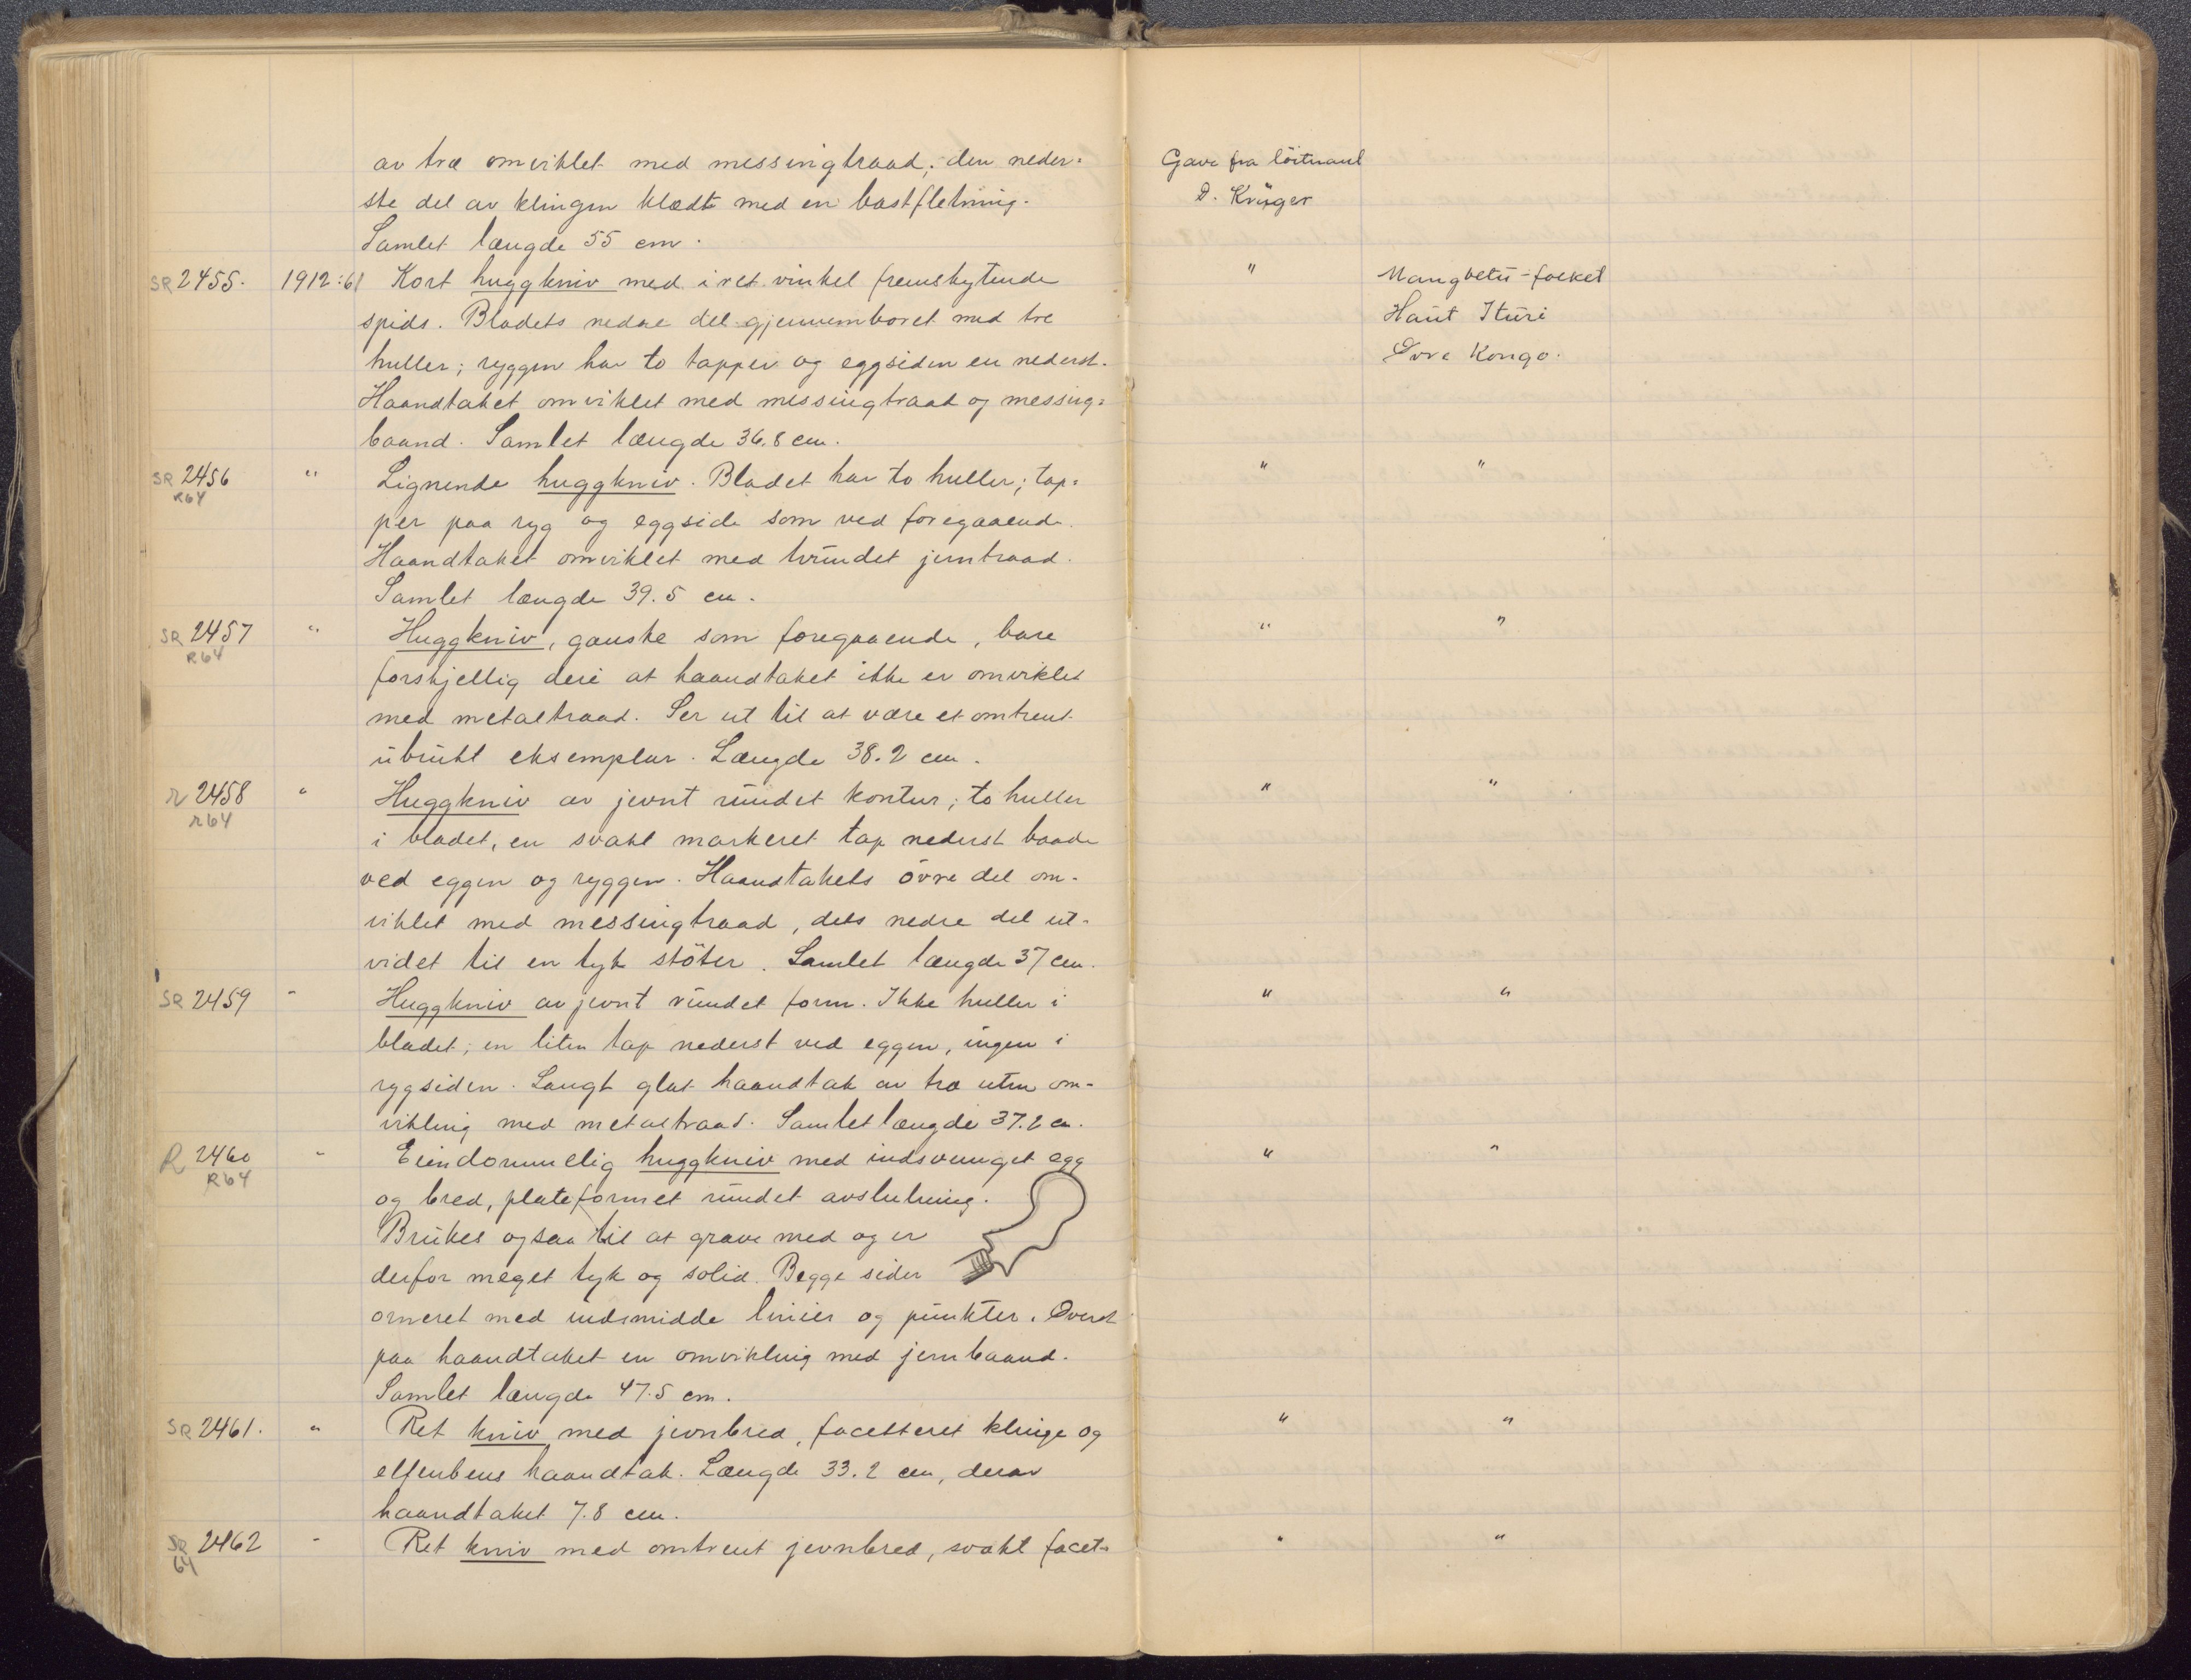 av træ omviklet med messingtraad; den neder= Gave fra löitnant
ste del av klingen klædt med en bastfletning. D. Krüger
Samlet længde 55 cm.
SR 2455. 1912:61 Kort huggkniv med i ret vinkel fremskytende " Mangbetu-folket
spids. Bladets nedre del gjennemboret med tre Haut Ituri
huller; ryggen har to tapper og eggsiden en nederst. Övre Kongo.
Haandtaket omviklet med messingtraad og messing=
baand. Samlet længde 36.8 cm.
SR 2456 " Lignende huggkniv. Bladet har to huller; tap= " "
R64
per paa ryg og eggside som ved foregaaende.
Haandtaket omviklet med tvundet jerntraad.
Samlet længde 39.5 cm.
SR 2457 " Huggkniv, ganske som foregaaende, bare " "
R64
forskjellig deri at haandtaket ikke er omviklet
med metaltraad. Ser ut til at være et omtrent
ubrukt eksemplar. Længde 38.2 cm.
r 2458 " Huggkniv av jevnt rundet kontur; to huller " "
r64
i bladet, en svakt markeret tap nederst baade
ved eggen og ryggen. Haandtakets övre del om-
viklet med messingtraad, dets nedre del ut-
videt til en tyk stöter. Samlet længde 37 cm.
SR 2459 " Huggkniv av jevnt rundet form. Ikke huller i " "
bladet; en liten tap nederst ved eggen, ingen i
rygsiden. Langt glat haandtak av træ uten om-
vikling med metaltraad. Samlet længde 37.2 cm.
R 2460 " Eiendommelig huggkniv med indsvunget egg " "
R64
og bred, plateformet rundet avslutning.
Brukes ogsaa til at grave med og er
derfor meget tyk og solid. Begge sider
orneret med indsmidde linier og punkter. Överst
paa haandtaket en omvikling med jernbaand.
Samlet længde 47.5 cm.
SR 2461. " Ret kniv med jevnbred, facetteret klinge og " "
elfenbens haandtak. Længde 33.2 cm, derav
haandtaket 7.8 cm.
SR 2462 " Ret kniv med omtrent jevnbred, svakt facet- " "
64